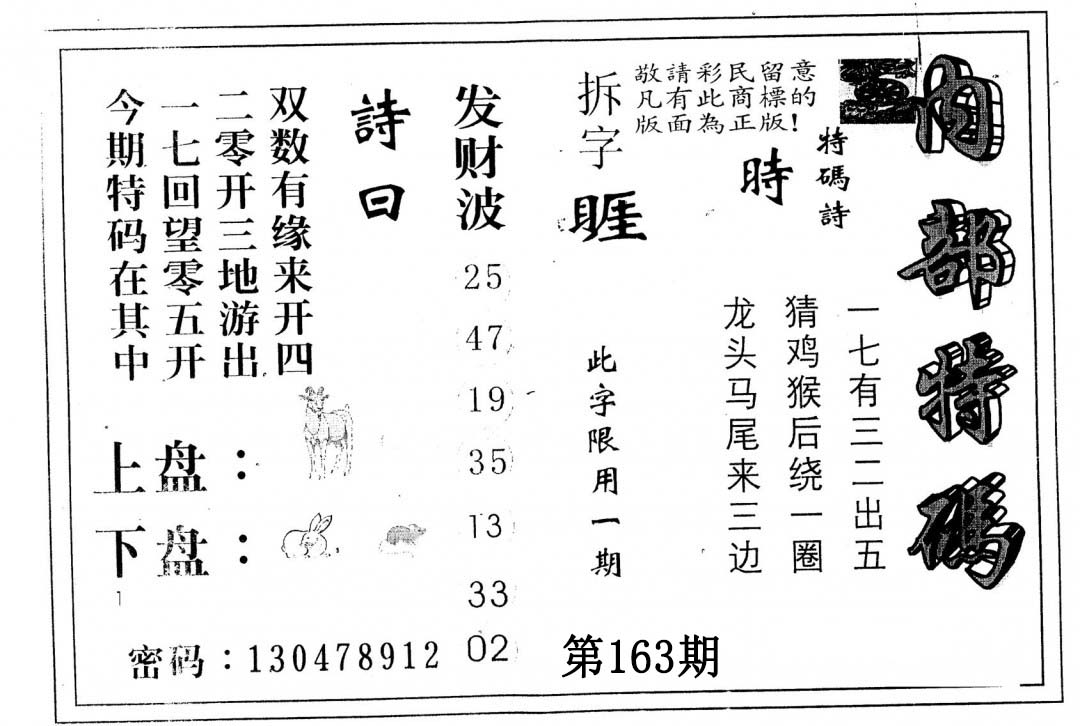 内部特碼
敬請彩民留意
凡有此商標的
版面為正版!
特碼詩
時
一七有三二出五
猜鸡猴后绕一圈
龙头马尾来三边
拆字
此字限用一期
发财波
25
47
19
35
13
33
02
詩曰
双数有缘来开四
二零开三地游出
一七回望零五开
今期特码在其中
上盘：
下盘：
密码：130478912
第163期